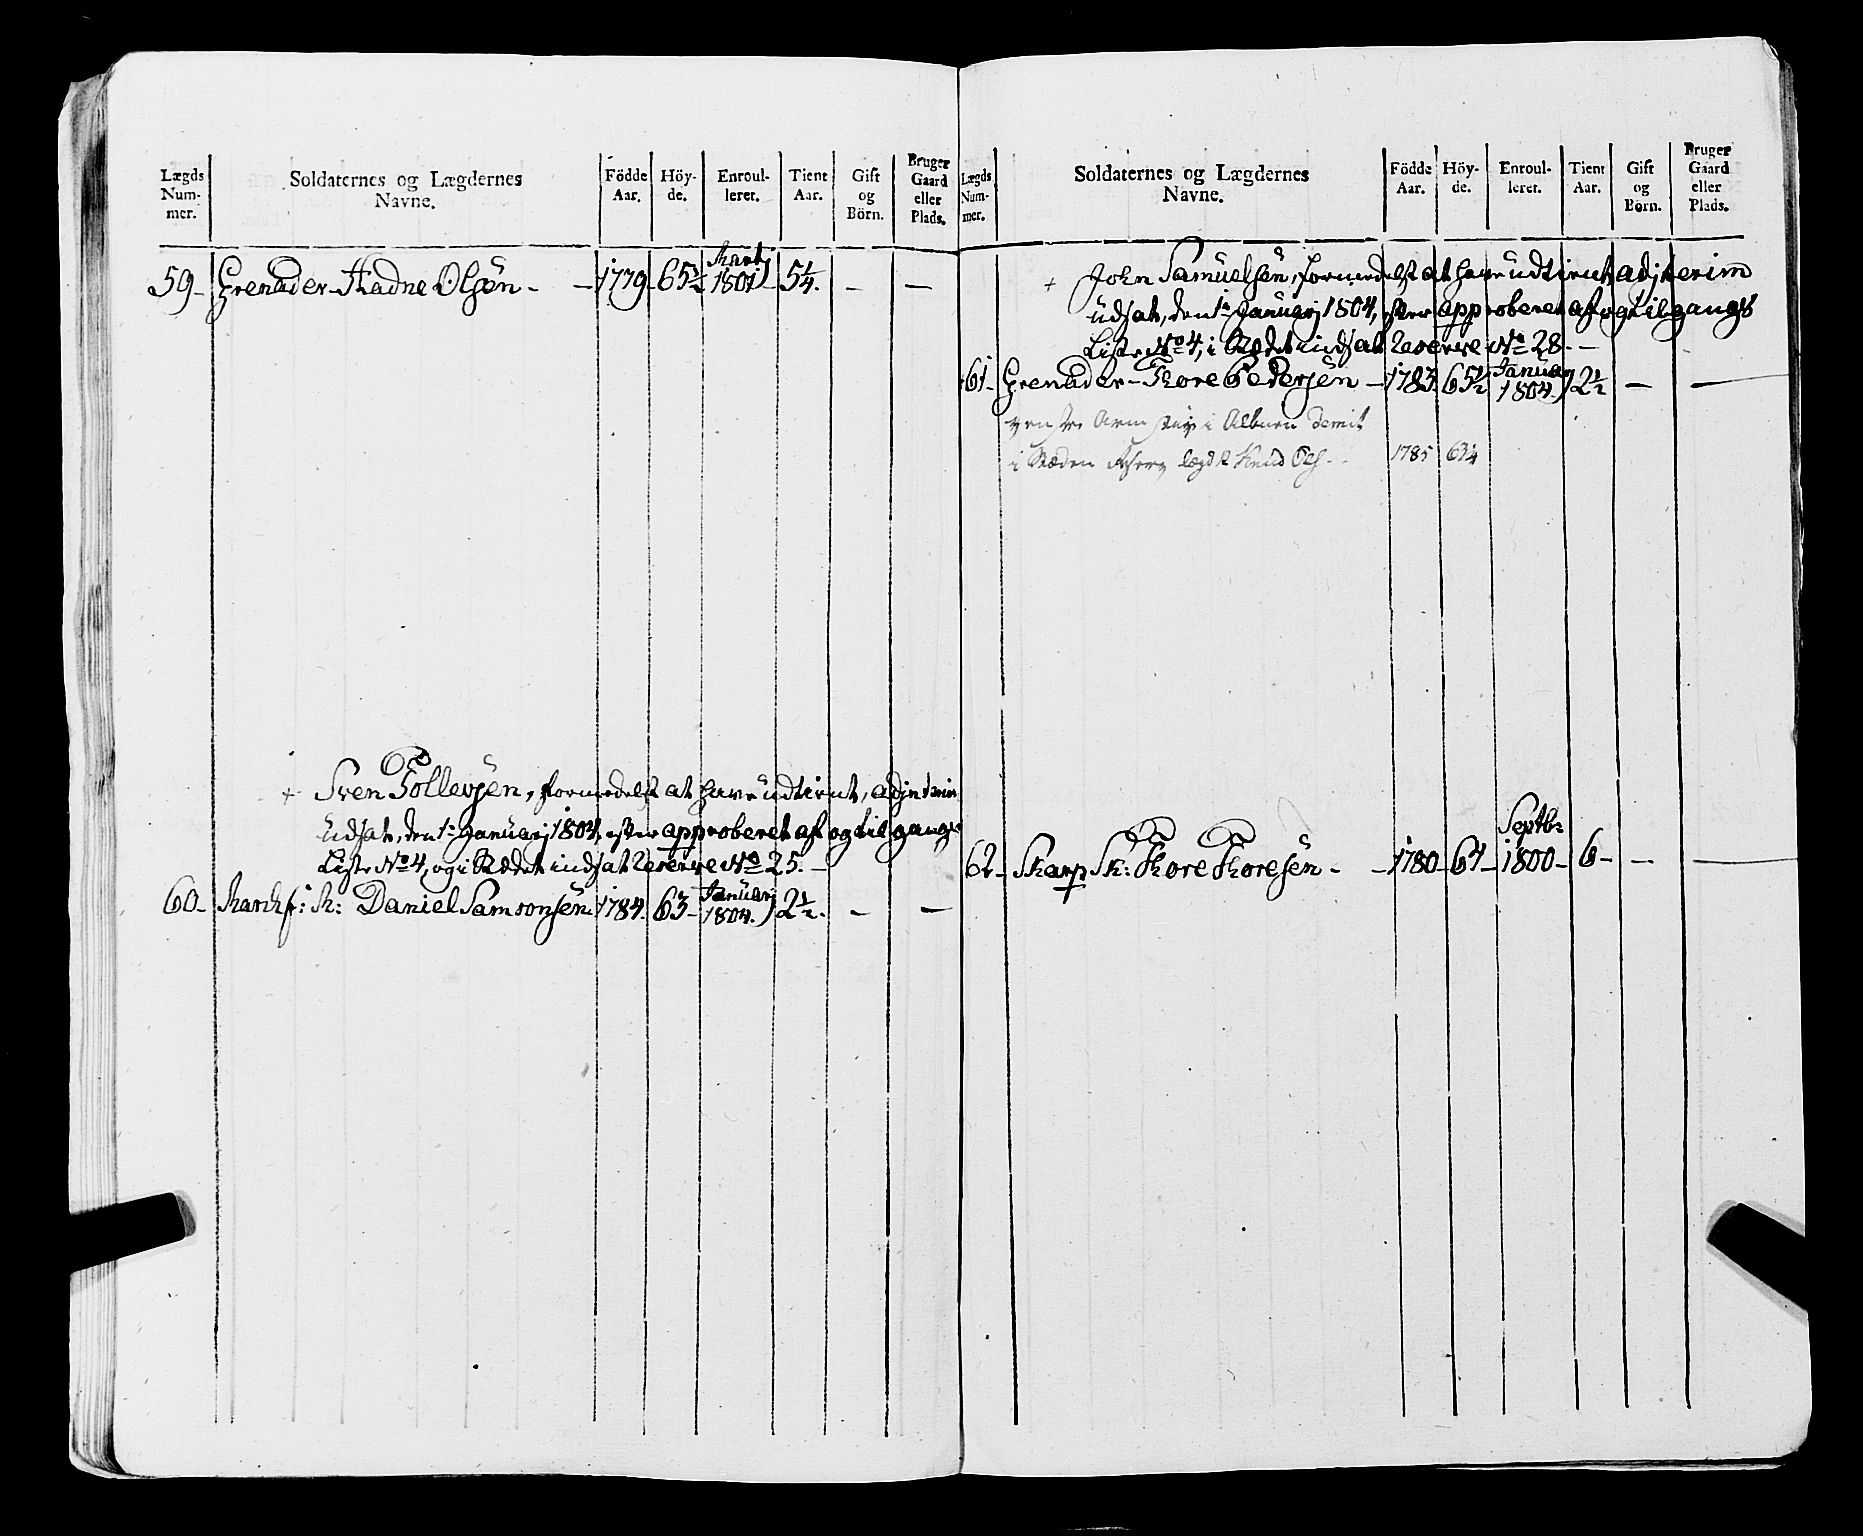 Lægds Num- mer.
Soldaternes og Lægdernes Navne.
Födde Aar.
Höy- de.
Enroul- leret.
Tient Aar.
Gift og Börn.
Bruger Gaard eller Plads.
59- Grenader Hadne Olsen - - 1779- 65½ Martj 1801 5¼. - -
+ Sven Tollevsen, formedelst at have udtient, adjnterim
udsat, den 1te Januarj 1804, efter approberet af og tilgangs
Liste No 4, og i Stædet indsat Reserve No 25. -
60- March f: : Daniel Samsonsen 1784. 63- Januarj 1804. 2½. - -
Lægds Num- mer.
Soldaternes og Lægdernes Navne.
Födde Aar.
Höy- de.
Enroul- leret.
Tient Aar.
Gift og Born.
Bruger Gaard eller Plads.
+ John Samuelsen, formedelst at have udtient, adjnterim
udsat, den 1te Januarj 1804, efter approberet af og tilgangs
Liste No 4, i Stædet indsat Reserve No 28. -
61- Grenader - Thore Pedersen - 1783. 65½ Januarj 1804. 2½ - -
venstre Arm stiv i Albuen demit
i Stæden lægdt Knud Ols - 1785 63¼
62- Skarp Sk: Thore Thoresen - - 1780- 64- Septbr 1800- 6- - -